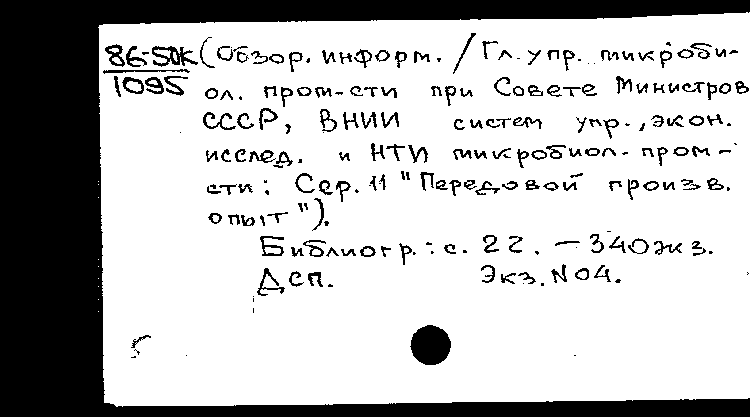 86-5ДК (Обзор. информ. / Гл. упр. микроби-
1095 ол. пром-сти при Совете Министров
СССР, ВНИИ систем упр., экон.
исслед. и НТИ микробиол. пром-
сти: Сер. 11 "Передовой произв.
опыт").
Библиогр.: с. 22. — 340экз.
ДСП. Экз. N04.
5